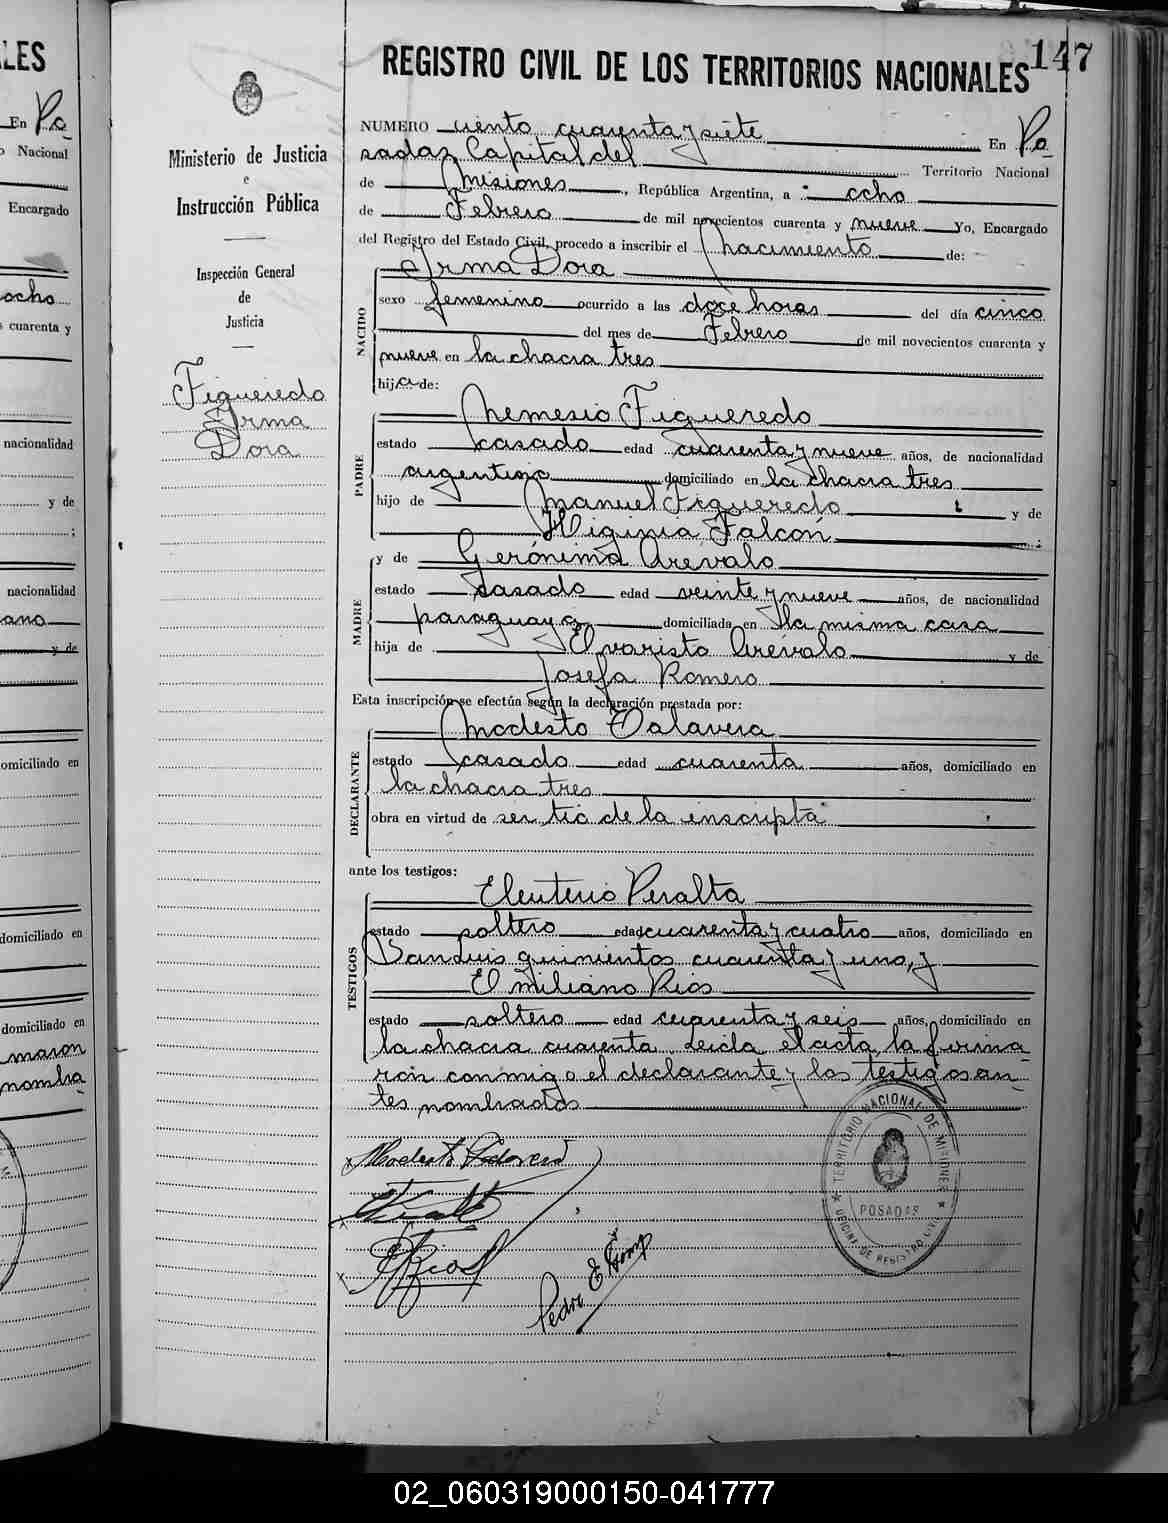 LES
En Po
Nacional
Encargado
ocho
cuarenta y
nacionalidad
y de
;
nacionalidad
ano
y de
omiciliado en
domiciliado en
domiciliado en
maron
nombra
Ministerio de Justicia
e
Instrucción Pública
Inspección General
de
Justicia
Figueredo
Irma
Dora
147
REGISTRO CIVIL DE LOS TERRITORIOS NACIONALES
NUMERO ciento cuarenta y siete En Po
sadas, Capital del Territorio Nacional
de Misiones, República Argentina, a ocho
de Febrero de mil novecientos cuarenta y nueve Yo, Encargado
del Registro del Estado Civil, procedo a inscribir el nacimiento de:
NACIDO
Irma Dora
sexo femenino ocurrido a las doce horas del día cinco
del mes de Febrero de mil novecientos cuarenta y
nueve en la chacra tres
hija de:
PADRE
Nemesio Figueredo
estado casado edad cuarenta y nueve años, de nacionalidad
argentino domiciliado en la chacra tres
hijo de Manuel Figueredo y de
Higinia Falcón ;
MADRE
y de Gerónima Arévalo
estado casado edad veinte y nueve años, de nacionalidad
paraguaya domiciliada en la misma casa
hija de Evaristo Arevalo y de
Josefa Romero
Esta inscripción se efectúa según la declaración prestada por:
DECLARANTE
Modesto Talavera
estado casado edad cuarenta años, domiciliado en
la chacra tres
obra en virtud de ser tio de la inscripta
ante los testigos:
TESTIGOS
Eleuterio Peralta
estado soltero edad cuarenta y cuatro años, domiciliado en
San Luis quinientos cuarenta y uno, y
Emiliano Rios
estado soltero edad cuarenta y seis años, domiciliado en
la chacra cuarenta. Leida el acta, la firma
ron conmigo el declarante y los testigos an
tes nombrados
Modesto Talavera
ERios
Pedro E
TERRITORIO NACIONAL DE MISIONES
POSADAS
OFICINA DE REGISTRO CIVIL
02_060319000150-041777